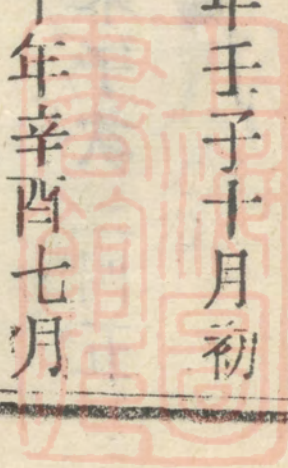 年壬子十月初
年辛酉七月